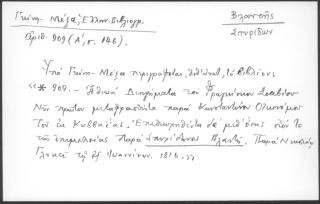 Γκίνη - Μέξα, Ἑλλην. Βιβλιογρ.
Βλαντῆς
ἀριθ. 909 (Α', σ. 146).
Σπυρίδων
Ὑπὸ Γκίνη - Μέξα περιγράφεται, τὸ βιβλίον:
«* 909. - Ἠθικὰ Διηγήματα τοῦ Φραγκίσκου Σοαβίου
Νῦν πρῶτον μεταφρασθέντα παρὰ Κωνσταντίνου Οἰκονόμου
Τοῦ ἐκ Ἐπιθεωρηθέντα δὲ μεθ' ὅσης οἷόν τε
τῆς ἐπιμελείας Παρὰ Σπυρίδωνος Βλαντῆ. Παρὰ Νικολάῳ
Γλυκεῖ τῷ ἐξ Ἰωαννίνων. 1816.»